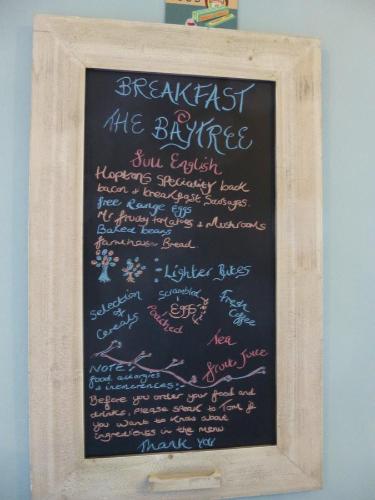 BREAKFAST
@
THE BAYTREE
Full English
Hoptons Speciality back
bacon & breakfast Sausages.
free Range Eggs
Mr fruity tomatoes & Mushrooms
Baked beans
farmhouse Bread.
Lighter Bites
Selection of Cereals
Scrambled
Eggs
Poached
Fresh Coffee
Tea
fruit Juice
NOTE:
food allergies
& interences:-
Before you order your food and
drinks, please speak to Tom if
you want to know about
ingredients in the menu
Thank You